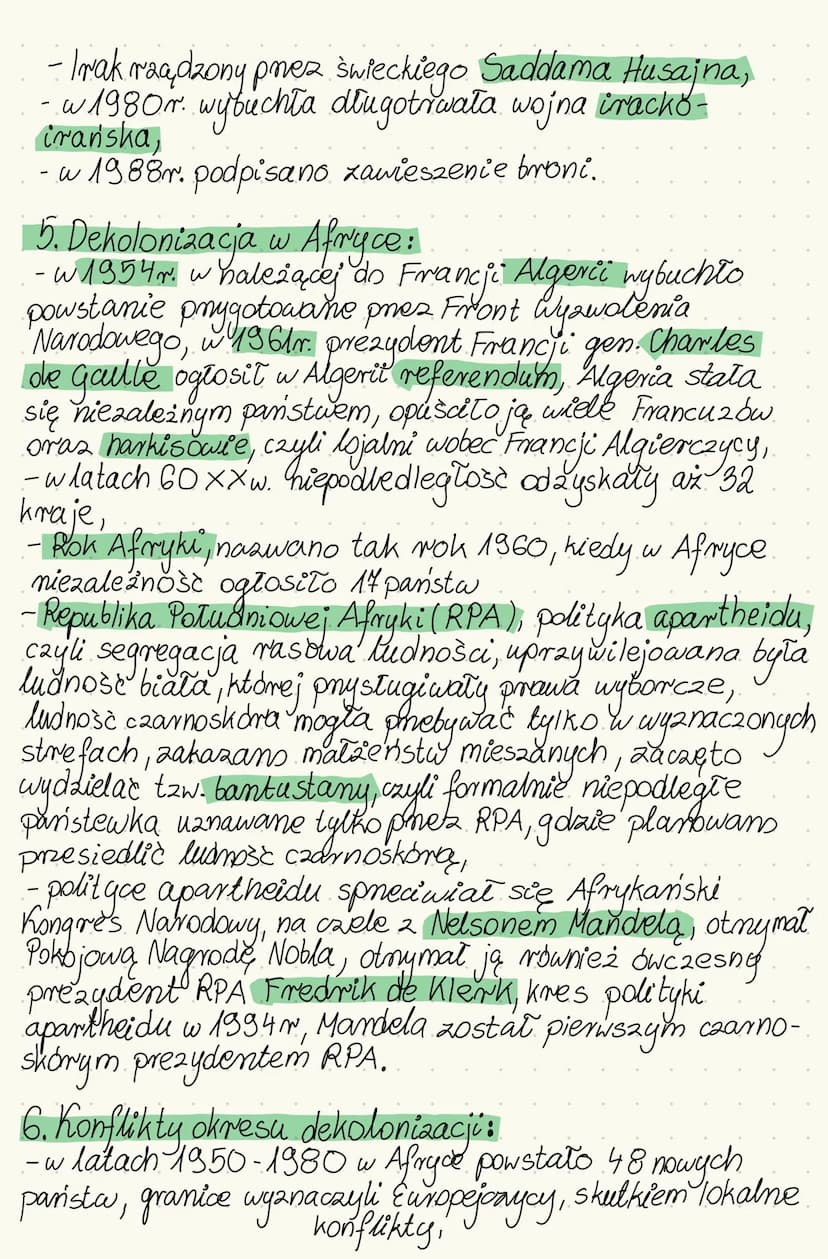 - Irak rządzony przez świeckiego Saddama Husajna,
- w 1980r. wybuchła długotrwała wojna iracko-
irańska,
- w 1988r. podpisano zawieszenie broni.
5. Dekolonizacja w Afryce:
- w 1954r. w należącej do Francji Algerii wybuchło
powstanie przygotowane przez Front Wyzwolenia
Narodowego, w 1961r. prezydent Francji gen. Charles
de Gaulle ogłosił w Algerii referendum, Algeria stała
się niezależnym państwem, opuściło ją wiele Francuzów
oraz harkisowie, czyli lojalni wobec Francji Algierczycy,
- w latach 60 XX w. niepodledległość odzyskały aż 32
kraje,
- Rok Afryki, nazwano tak rok 1960, kiedy w Afryce
niezależność ogłosiło 17 państw
- Republika Południowej Afryki (RPA), polityka apartheidu,
czyli segregacja rasowa ludności, uprzywilejowana była
ludność biała, której przysługiwały prawa wyborcze,
ludność czarnoskóra mogła przebywać tylko w wyznaczonych
strefach, zakazano małżeństw mieszanych, zaczęto
wydzielać tzw. bantustany, czyli formalnie niepodległe
państewka uznawane tylko przez RPA, gdzie planowano
przesiedlić ludność czarnoskórą,
- polityce apartheidu sprzeciwiał się Afrykański
Kongres Narodowy, na czele z Nelsonem Mandelą, otrzymał
Pokojową Nagrodę Nobla, otrzymał ją również ówczesny
prezydent RPA Fredrik de Klerk, kres polityki
apartheidu w 1994r, Mandela został pierwszym czarno-
skórym prezydentem RPA.
6. Konflikty okresu dekolonizacji:
- w latach 1950-1980 w Afryce powstało 48 nowych
państw, granice wyznaczyli Europejczycy, skutkiem lokalne
konflikty,